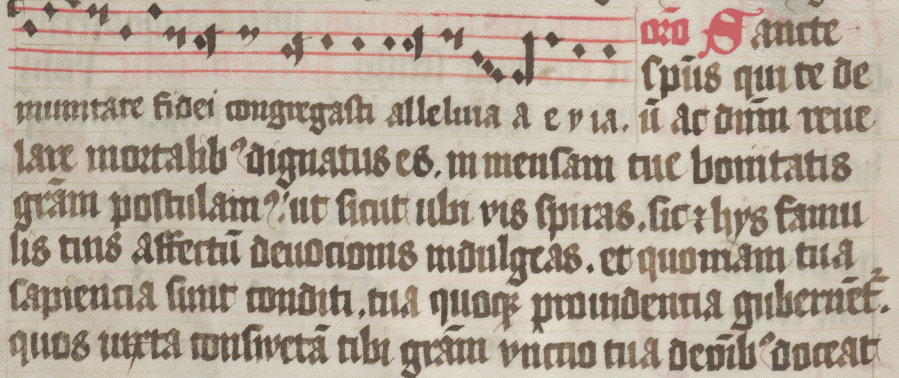 oro Sancte
spūs qui te de
inunitate fidei congregasti alleluia a e v ia. ū ac dnm reue
lare mortalib' dignatus es. in mensam tue bonitatis
grām postulam': ut sicut ubi vis spiras. sic ⁊ hys famu
lis tuis affectū deuocionis indulgeas. et quoniam tua
sapiencia sunt conditi, tua quoqꝫ prouidencia gubernēt'.
quos iuxta conswetā tibi grām vnctio tua deōib' doceat